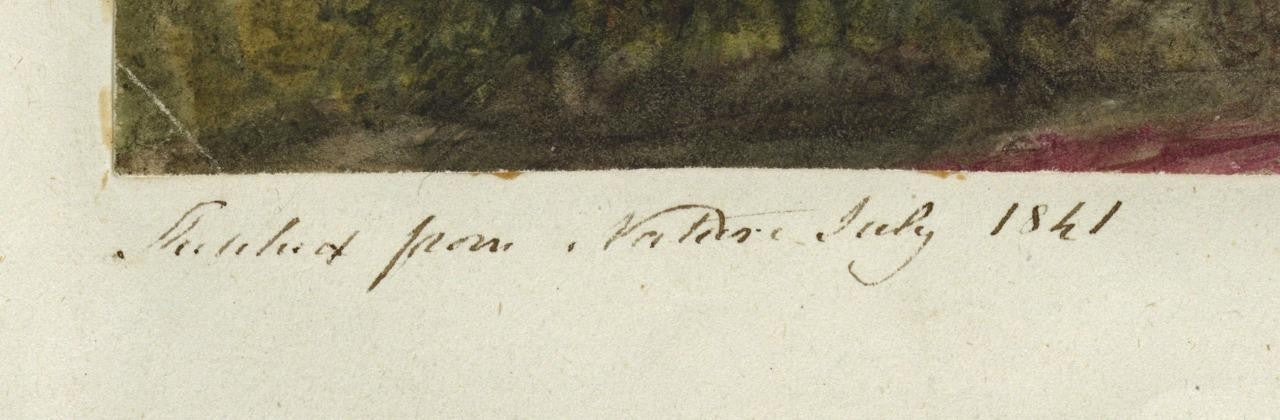 from Nature July 1841